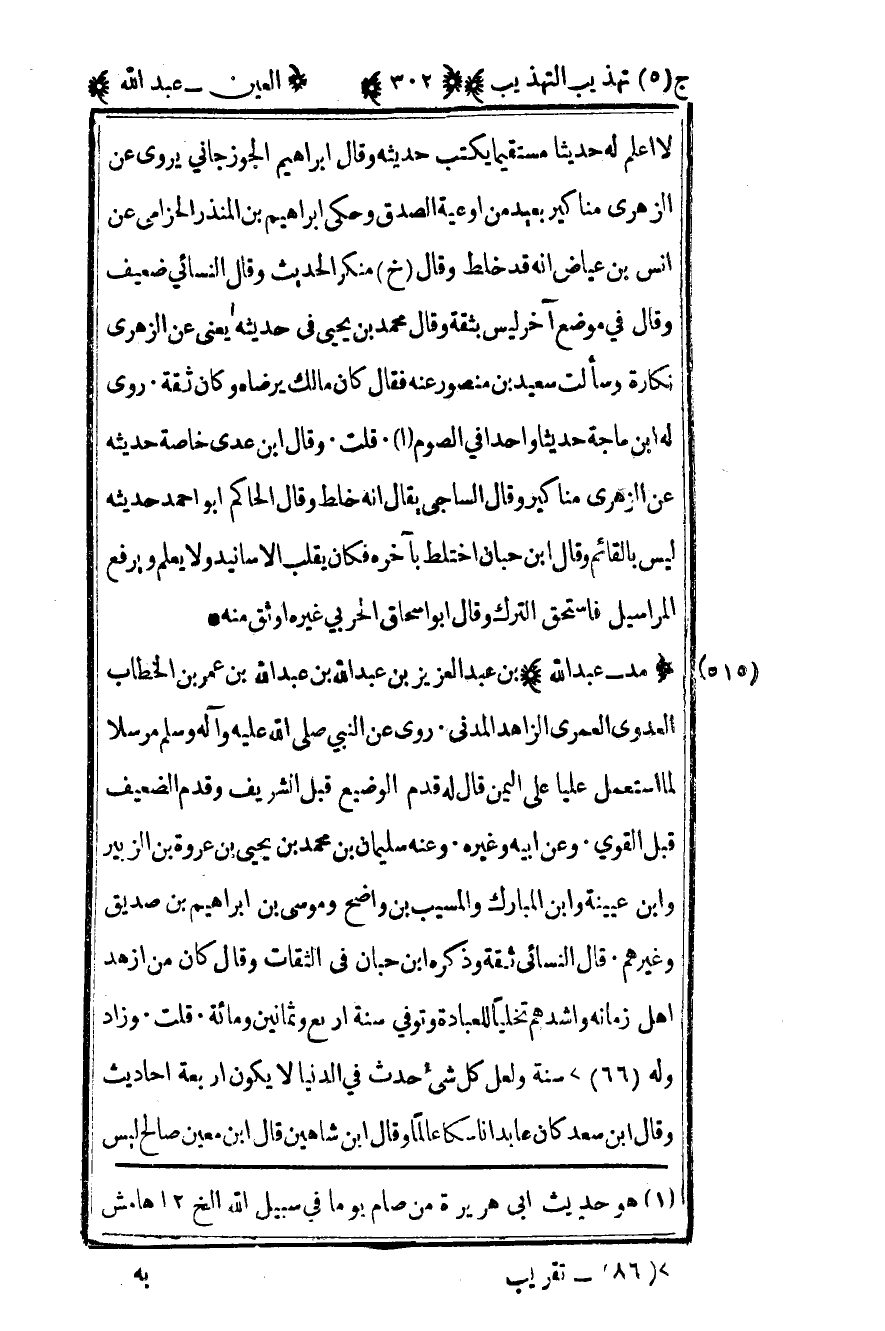 ج(٥) تهذيب التهذيب ﴿ ٣٠٢ ﴾ ﴿ العين ـ عبد الله ﴾
لا اعلم له حديثا مستقيما يكتب حديثه وقال ابراهيم الجوزجاني يروى عن
الزهرى مناكير بعيد من اوعية الصدق وحكى ابراهيم بن المنذر الحزامى عن
انس بن عياض انه قد خلط وقال (خ) منكر الحديث وقال النسائي ضعيف
وقال في موضع آخر ليس بثقة وقال محمد بن يحيى فى حديثه يعنى عن الزهرى
نكارة وسألت سعيد بن منصور عنه فقال كان مالك يرضاه وكان ثقة · روى
له ابن ماجة حديثا واحدا في الصوم (١) · قلت · وقال ابن عدى خاصة حديثه
عن الزهرى مناكير وقال الساجى يقال انه خلط وقال الحاكم ابو احمد حديثه
ليس بالقائم وقال ابن حبان اختلط بآخره فكان يقلب الاسانيد ولا يعلم ويرفع
المراسيل فاستحق الترك وقال ابو اسحاق الحربي غيره اوثق منه •
(٥١٥) ﴿ مد ـ عبد الله ﴾ بن عبد العزيز بن عبد الله بن عبد الله بن عمر بن الخطاب
العدوى العمرى الزاهد المدنى · روى عن النبي صلى الله عليه وآله وسلم مرسلا
لما استعمل عليا على اليمن قال له قدم الوضيع قبل الشريف وقدم الضعيف
قبل القوي · وعن ابيه وغيره · وعنه سليمان بن محمد بن يحيى بن عروة بن الزبير
وابن عيينة وابن المبارك والمسيب بن واضح وموسى بن ابراهيم بن صديق
وغيرهم · قال النسائى ثقة وذكره ابن حبان فى الثقات وقال كان من ازهد
اهل زمانه واشدهم تخليا للعبادة وتوفي سنة اربع وثمانين ومائة · قلت · وزاد
وله (٦٦) > سنة ولعل كل شئ حدث في الدنيا لا يكون اربعة احاديث
وقال ابن سعد كان عابدا ناسكا عالما وقال ابن شاهين قال ابن معين صالح ليس
(١) هو حديث ابى هريرة من صام يوما في سبيل الله الخ ١٢ هامش
> (٨٦) ـ تقريب
به